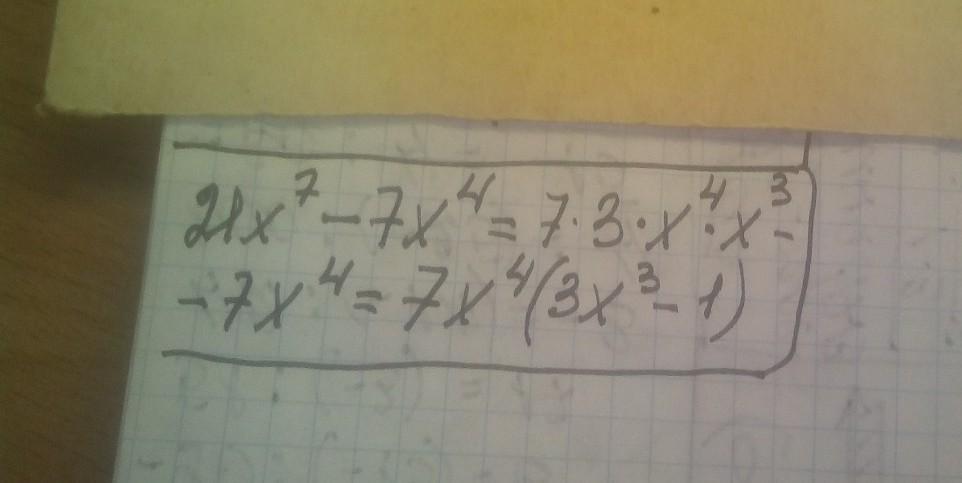 21x⁷ - 7x⁴ = 7·3·x⁴·x³ -
- 7x⁴ = 7x⁴(3x³ - 1)